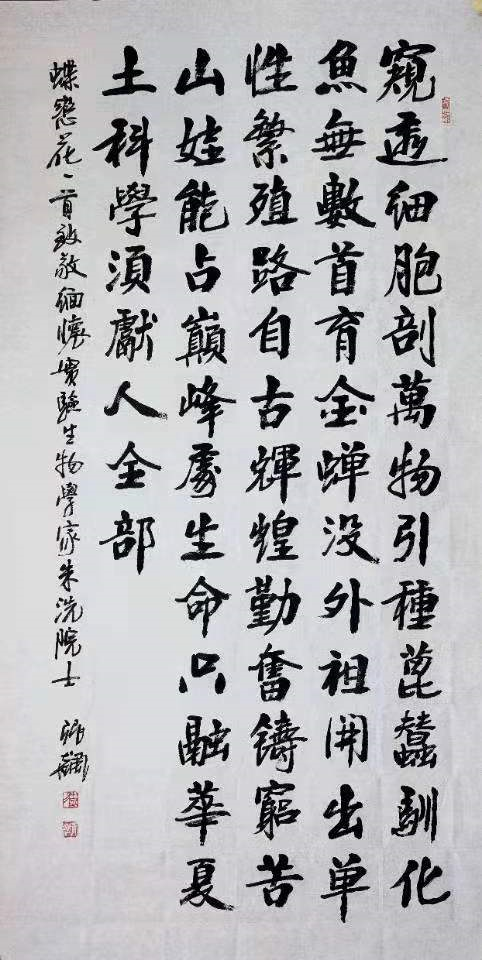 窺透細胞剖萬物引種蓖蠶馴化
魚無數首育金蝉没外祖開出单
性繁殖路自古輝煌勤奮鑄窮苦
山娃能占巔峰處生命只融華夏
土科學須獻人全部
蝶戀花一首致敬緬懷實驗生物學家朱洗院士